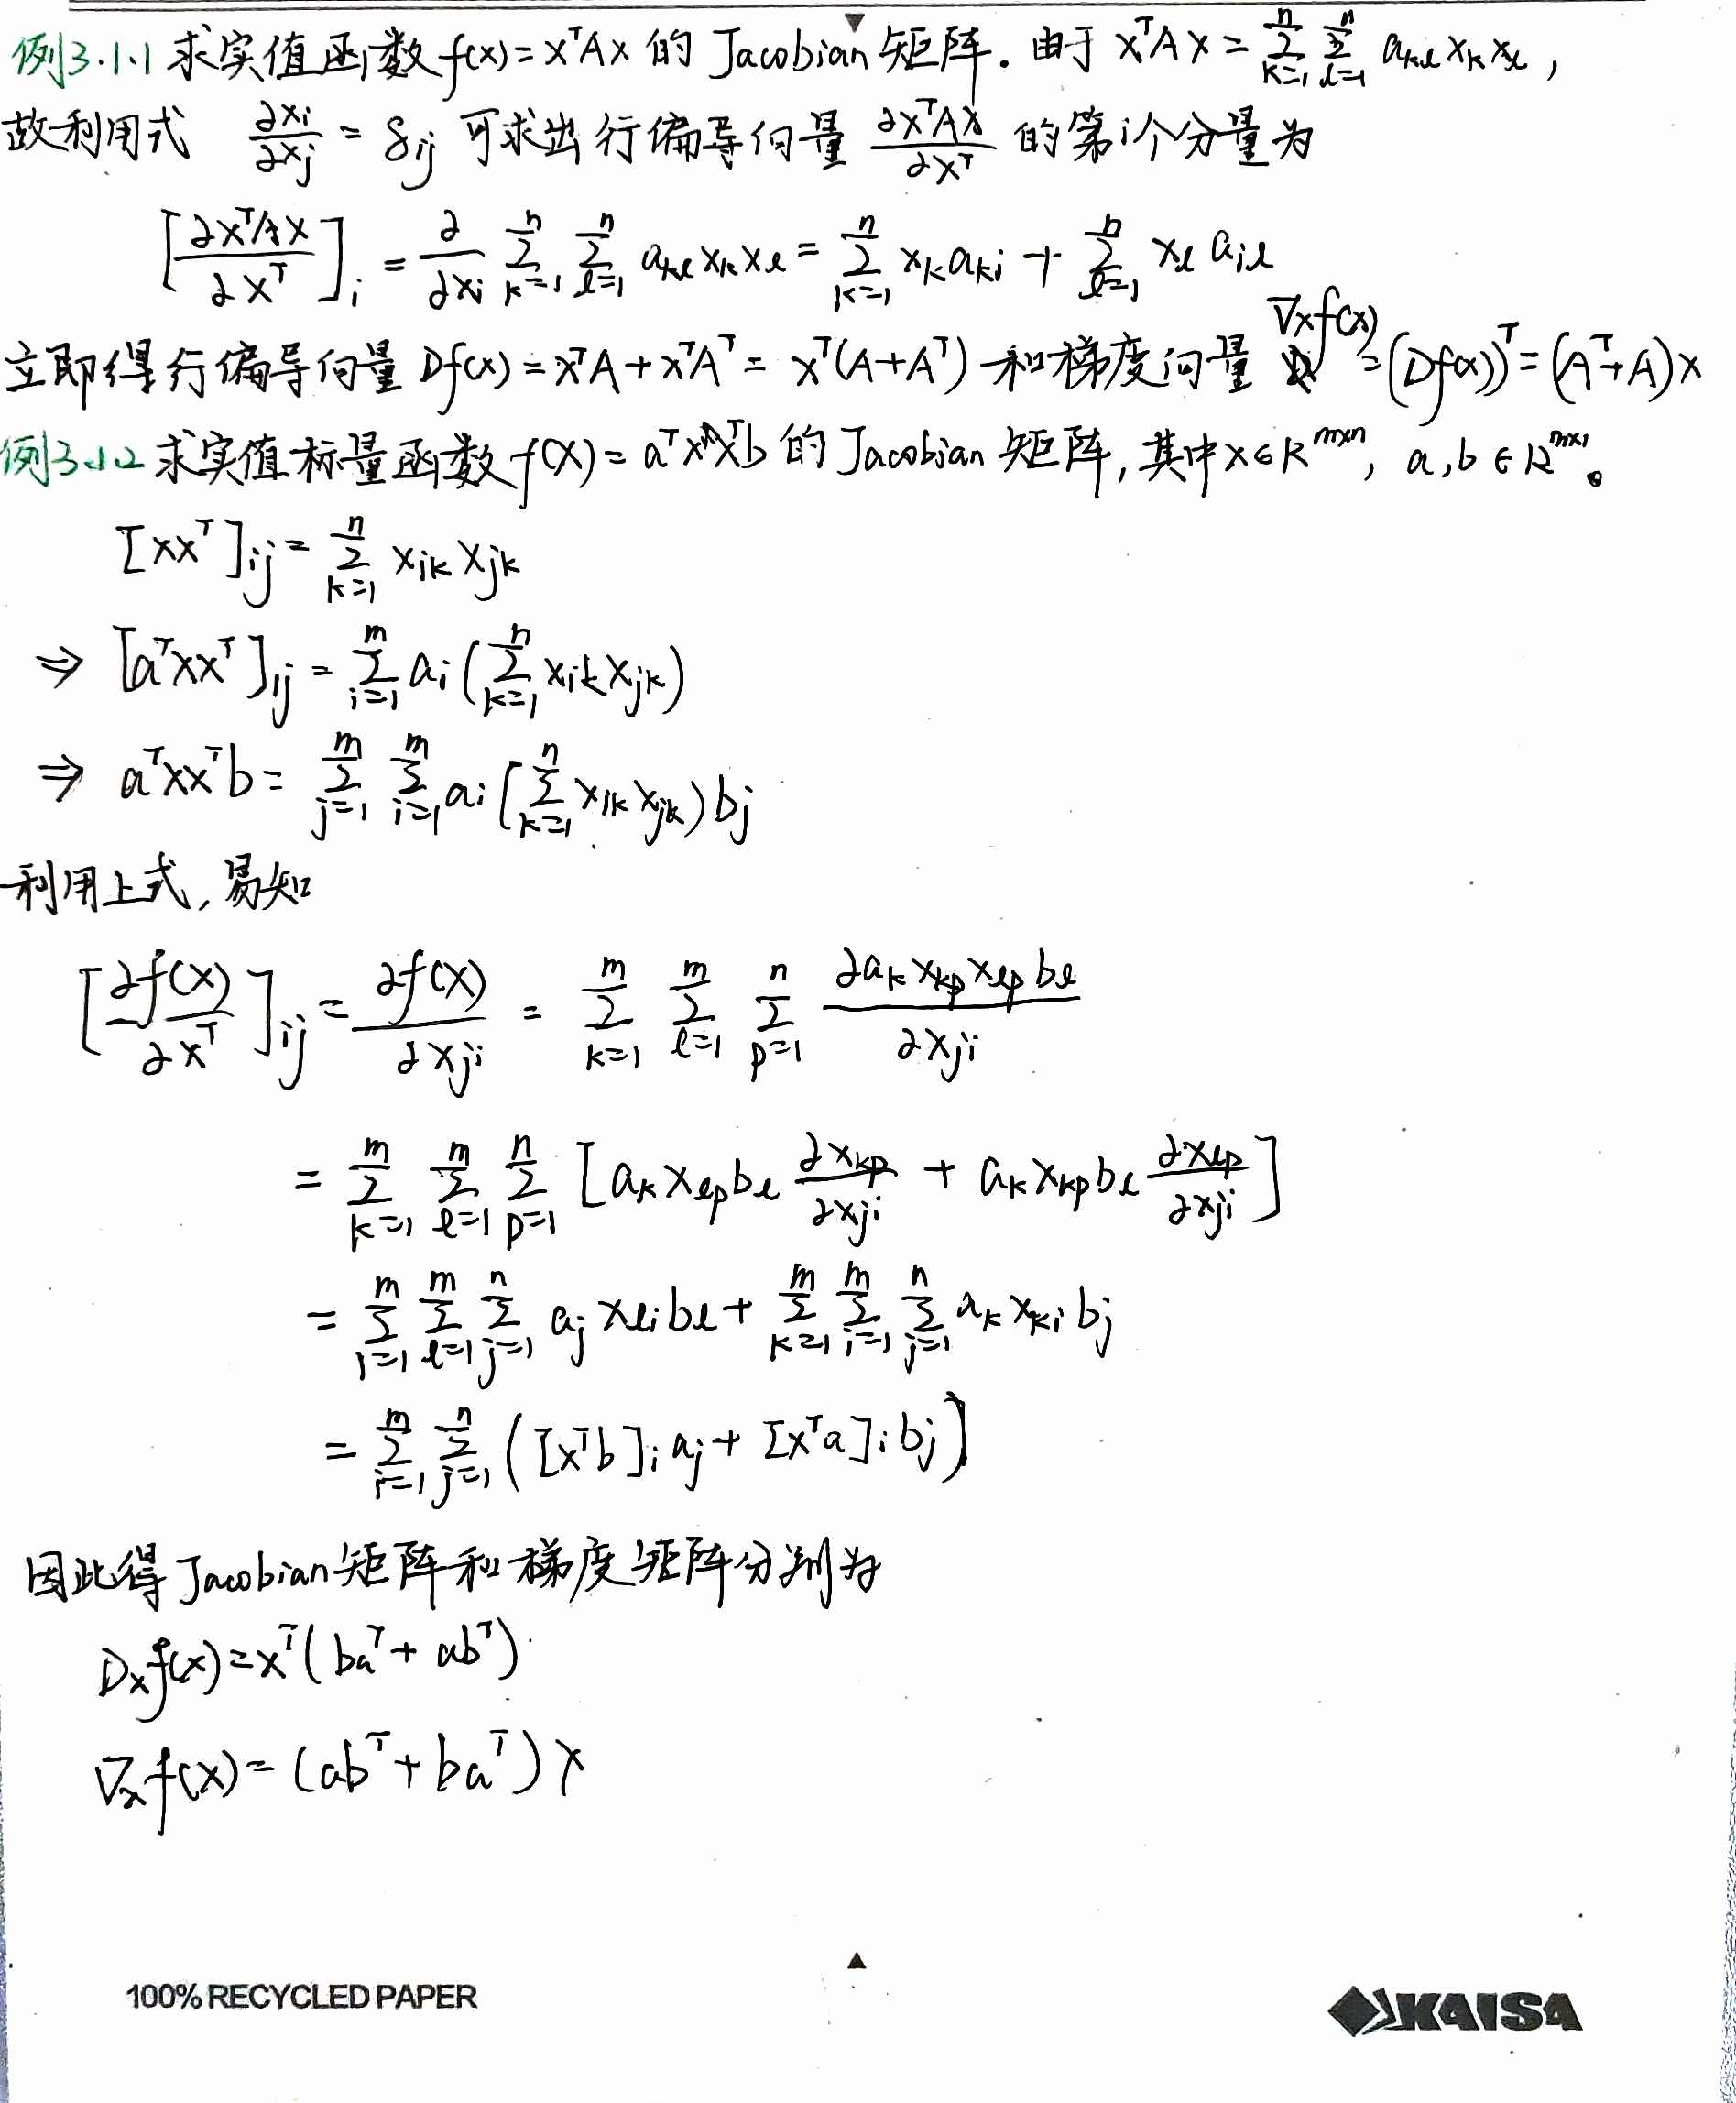 例3.1.1 求实值函数 f(x)=xᵀAx 的 Jacobian 矩阵. 由于 xᵀAx = ∑_{k=1}^{n} ∑_{l=1}^{n} a_{kl} x_k x_l ,
故利用式 ∂x_i/∂x_j = δ_{ij} 可求出行偏导向量 ∂xᵀAx/∂xᵀ 的第i个分量为
[∂xᵀAx/∂xᵀ]_i = ∂/∂x_i ∑_{k=1}^{n} ∑_{l=1}^{n} a_{kl} x_k x_l = ∑_{k=1}^{n} x_k a_{ki} + ∑_{l=1}^{n} x_l a_{il}
立即得行偏导向量 Df(x) = xᵀA + xᵀAᵀ = xᵀ(A+Aᵀ) 和梯度向量 ∇_x f(x) = (Df(x))ᵀ = (Aᵀ+A)x
例3.1.2 求实值标量函数 f(X) = aᵀXXᵀb 的 Jacobian 矩阵, 其中 X∈R^{m×n}, a,b∈R^{m×1}。
[XXᵀ]_{ij} = ∑_{k=1}^{n} x_{ik} x_{jk}
⇒ [aᵀXXᵀ]_{ij} = ∑_{i=1}^{m} a_i (∑_{k=1}^{n} x_{ik} x_{jk})
⇒ aᵀXXᵀb = ∑_{j=1}^{m} ∑_{i=1}^{m} a_i [∑_{k=1}^{n} x_{ik} x_{jk}) b_j
利用上式, 易知
[∂f(X)/∂Xᵀ]_{ij} = ∂f(X)/∂x_{ji} = ∑_{k=1}^{m} ∑_{l=1}^{m} ∑_{p=1}^{n} ∂a_k x_{kp} x_{lp} b_l/∂x_{ji}
= ∑_{k=1}^{m} ∑_{l=1}^{m} ∑_{p=1}^{n} [a_k x_{lp} b_l ∂x_{kp}/∂x_{ji} + a_k x_{kp} b_l ∂x_{lp}/∂x_{ji}]
= ∑_{i=1}^{m} ∑_{l=1}^{m} ∑_{j=1}^{n} a_j x_{li} b_l + ∑_{k=1}^{m} ∑_{i=1}^{m} ∑_{j=1}^{n} a_k x_{ki} b_j
= ∑_{i=1}^{m} ∑_{j=1}^{n} ([Xᵀb]_i a_j + [Xᵀa]_i b_j)
因此得 Jacobian 矩阵和梯度矩阵分别为
D_X f(X) = Xᵀ(baᵀ + abᵀ)
∇_X f(X) = (abᵀ + baᵀ)X
100% RECYCLED PAPER
KAISA